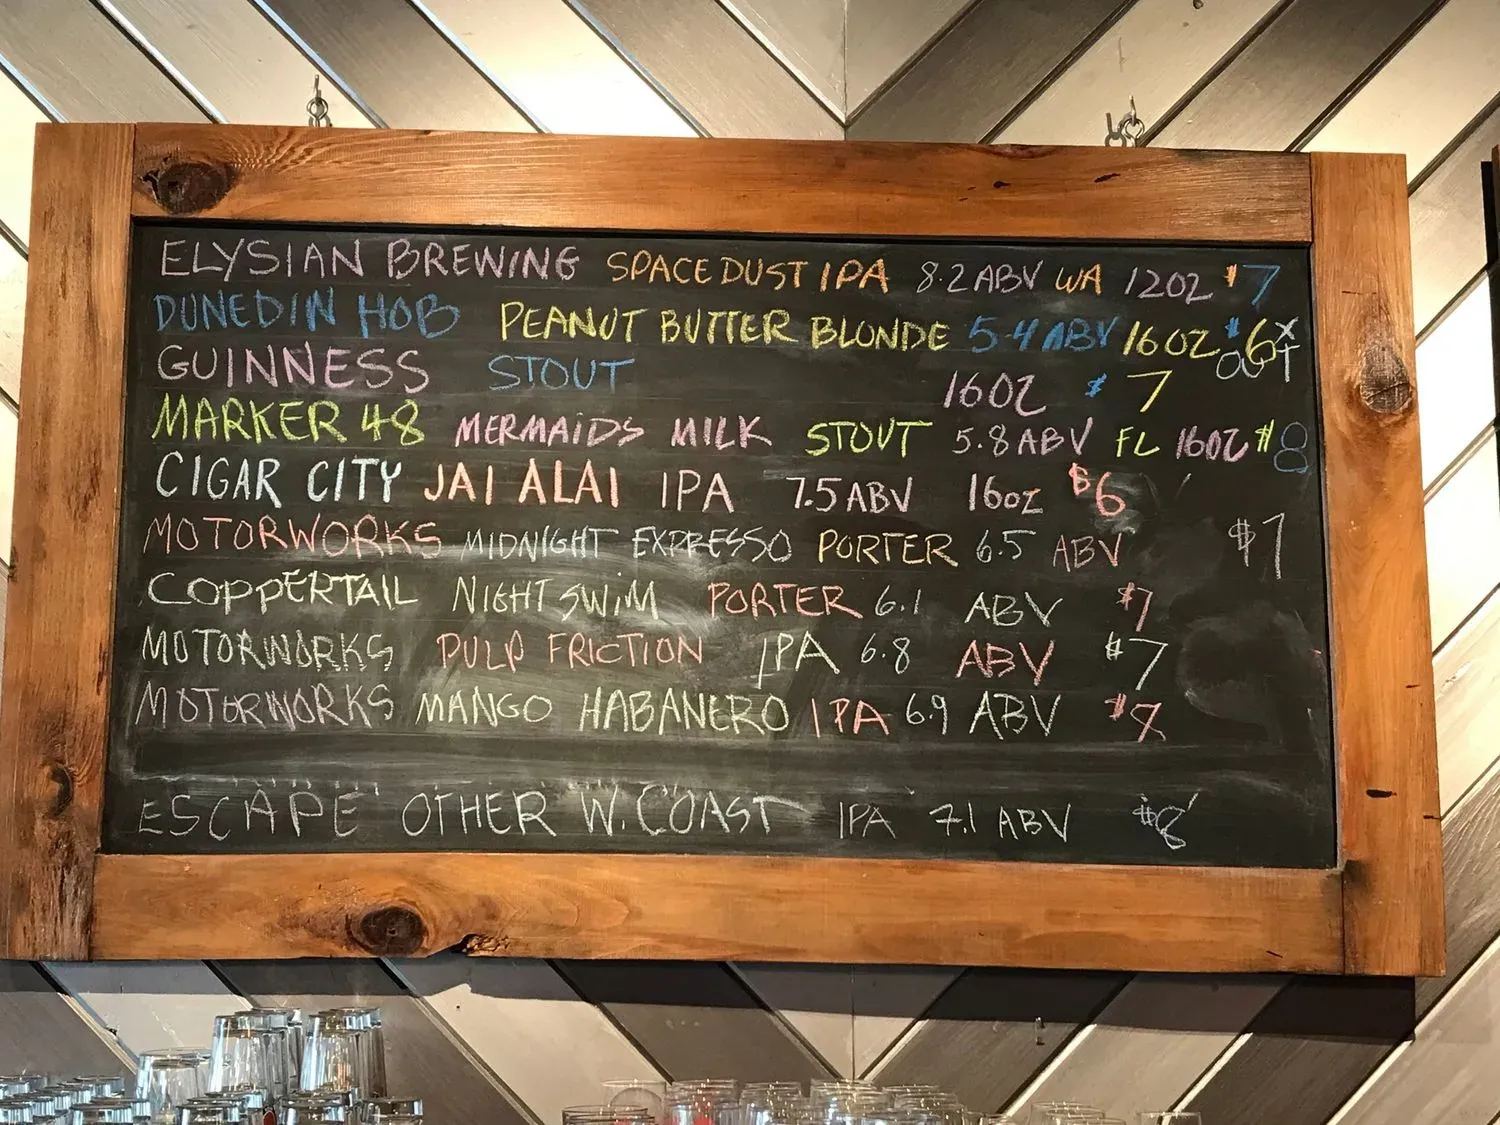 ELYSIAN BREWING SPACE DUST IPA 8.2 ABV WA 12OZ $7
DUNEDIN HOB PEANUT BUTTER BLONDE 5.4 ABV 16OZ $6 X
OUT
GUINNESS STOUT 16OZ $7
MARKER 48 MERMAIDS MILK STOUT 5.8 ABV FL 16OZ $8
CIGAR CITY JAI ALAI IPA 7.5 ABV 16OZ $6
MOTORWORKS MIDNIGHT EXPRESSO PORTER 6.5 ABV $7
COPPERTAIL NIGHT SWIM PORTER 6.1 ABV $7
MOTORWORKS PULP FRICTION IPA 6.8 ABV $7
MOTORWORKS MANGO HABANERO IPA 6.9 ABV $8
ESCAPE OTHER W. COAST IPA 7.1 ABV $8